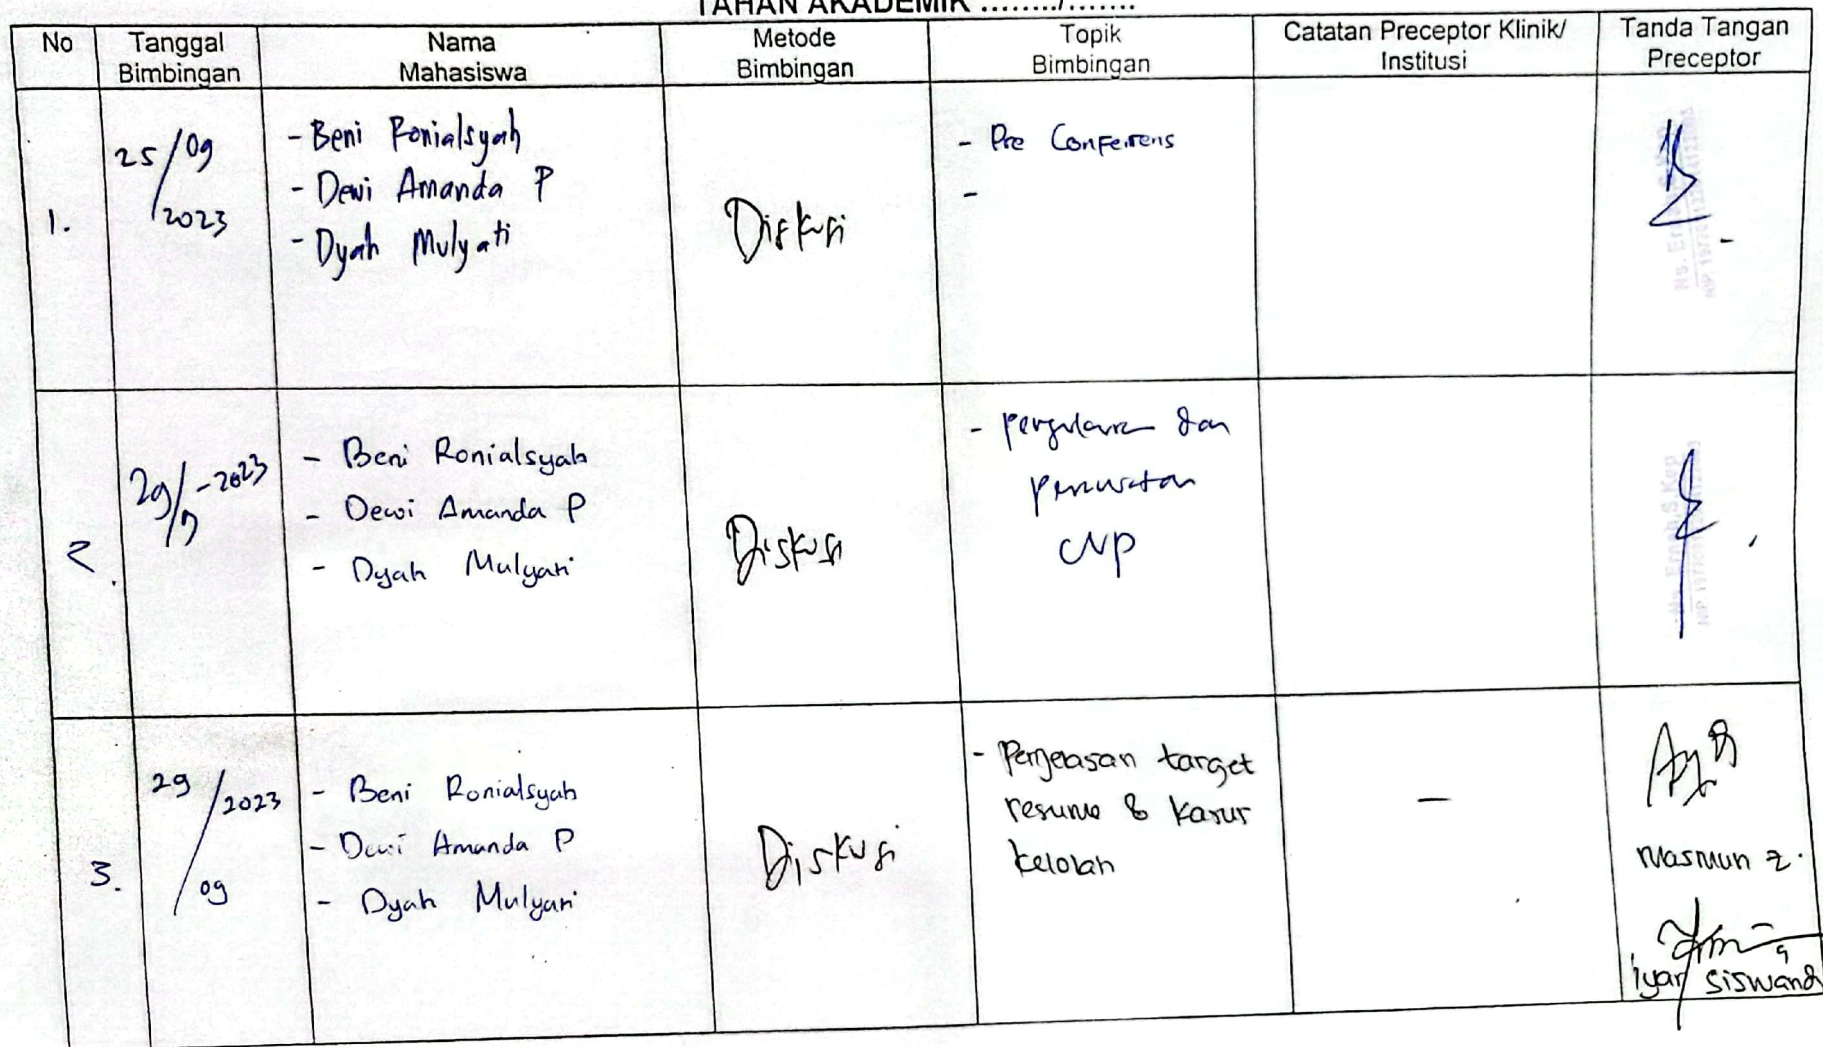 TAHAN AKADEMIK ......../.......
No
Tanggal
Bimbingan
Nama
Mahasiswa
Metode
Bimbingan
Topik
Bimbingan
Catatan Preceptor Klinik/
Institusi
Tanda Tangan
Preceptor
1.
25/09
2023
- Beni Ronialsyah
- Dewi Amanda P
- Dyah Mulyati
Diskusi
- Pre Conferens
-
2.
29/ -2023
- Beni Ronialsyah
- Dewi Amanda P
- Dyah Mulyati
Diskusi
- dan
CVP
3.
29/2023
/09
- Beni Ronialsyah
- Dewi Amanda P
- Dyah Mulyati
Diskusi
- Penjelasan target
resume & kasus
kelolah
-
Masmun z.
iyar siswandi